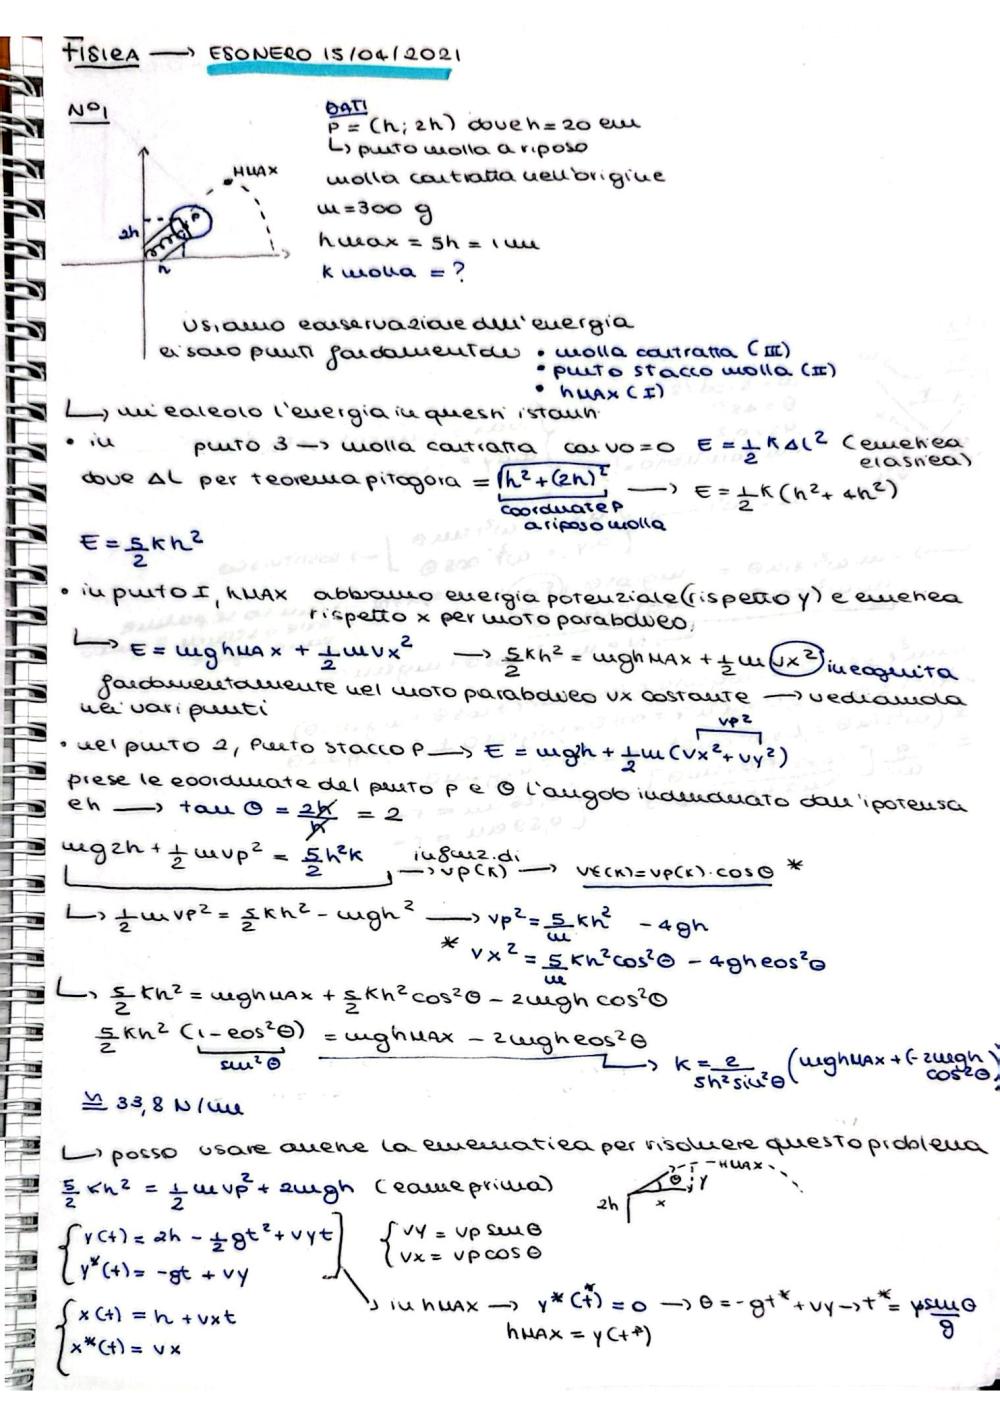 FISICA → ESONERO 15/04/2021
N°1
DATI
P = (h; 2h) dove h = 20 cm
↳ punto molla a riposo
molla contratta nell'origine
m = 300 g
hmax = 5h = 1 m
k molla = ?
HMAX
P
2h
h
usiamo conservazione dell'energia
ci sono punti fondamentali • molla contratta (III)
• punto stacco molla (II)
• hMAX (I)
↳ mi calcolo l'energia in questi istanti
• in punto 3 → molla contratta con v0=0 E = 1/2 K ΔL² (cinetica elastica)
dove ΔL per teorema pitagora = √(h²+(2h)²) → E = 1/2 K (h² + 4h²)
coordinate P
a riposo molla
E = 5/2 Kh²
• in punto I, hMAX abbiamo energia potenziale (rispetto y) e cinetica
rispetto x per moto parabolico,
↳ E = mghMAX + 1/2 mvx² → 5/2 Kh² = mghMAX + 1/2 m vx² incognita
fondamentalmente nel moto parabolico vx costante → vediamola
nei vari punti
• nel punto 2, Punto stacco P → E = mg2h + 1/2 m (vx² + vy²)
vp²
prese le coordinate del punto P e θ l'angolo individuato dall'ipotenusa
e h → tan θ = 2h/h = 2
mg2h + 1/2 mvp² = 5/2 h²K in funz. di → vp(K) → vx(K) = vp(K) · cosθ *
↳ 1/2 mvp² = 5/2 Kh² - mgh² → vp² = 5/m Kh² - 4gh
* vx² = 5/m Kh² cos²θ - 4gh cos²θ
↳ 5/2 Kh² = mghMAX + 5/2 Kh² cos²θ - 2mgh cos²θ
5/2 Kh² (1 - cos²θ) = mghMAX - 2mgh cos²θ
sin²θ
→ K = 2/(5h² sin²θ) (mghMAX + (-2mgh cos²θ)
≅ 33,8 N/m
↳ posso usare anche la cinematica per risolvere questo problema
5/2 Kh² = 1/2 mvp² + 2mgh (come prima)
HMAX
θ
y
x
2h
{ y(t) = 2h - 1/2 gt² + vyt
y*(t) = -gt + vy
{ vy = vp sinθ
vx = vp cosθ
{ x(t) = h + vxt
x*(t) = vx
↳ in hMAX → y*(t*) = 0 → 0 = -gt* + vy → t* = vp sinθ/g
hMAX = y(t*)